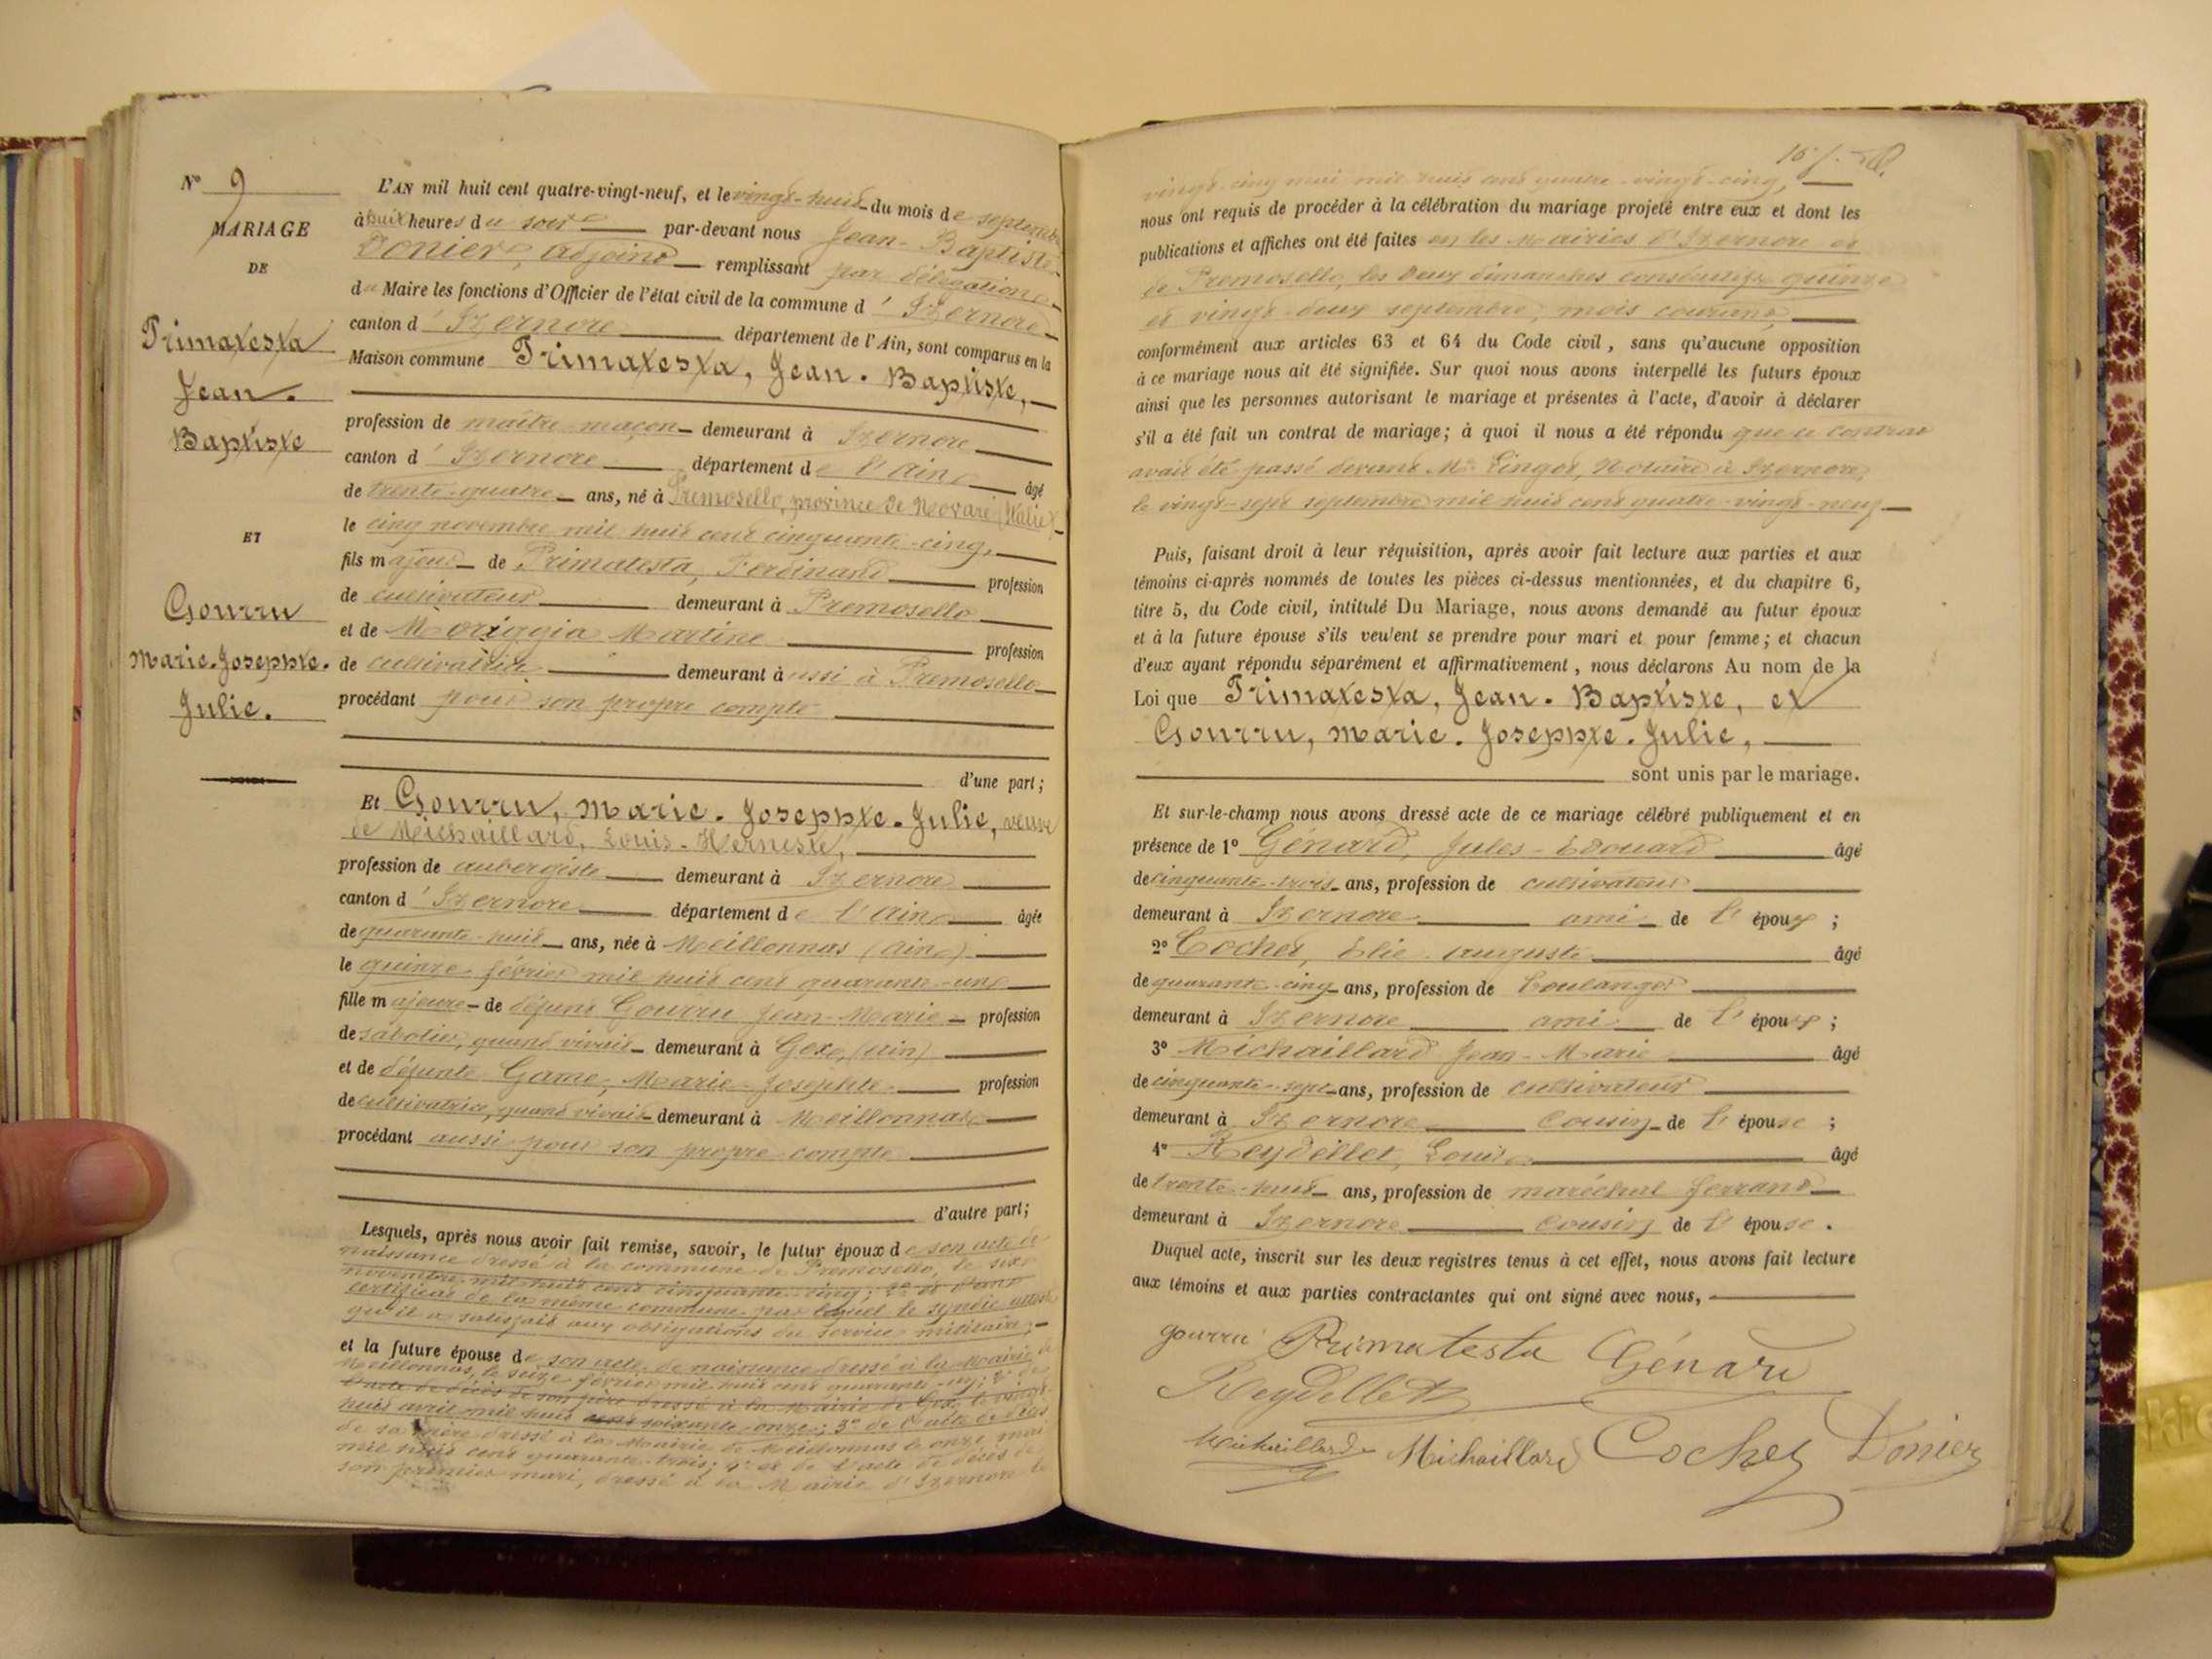 N° 9
MARIAGE
DE
Primatesta
Jean-
Baptiste
ET
Gourru
Marie-Josephte-
Julie.
L'AN mil huit cent quatre-vingt-neuf, et le vingt-huit du mois de septembre
à huit heures du soir par-devant nous Jean-Baptiste
Donier, adjoint remplissant par délégation
du Maire les fonctions d'Officier de l'état civil de la commune d'Izernore
canton d'Izernore département de l'Ain, sont comparus en la
Maison commune Primatesta, Jean-Baptiste,
profession de maître-maçon demeurant à Izernore
canton d'Izernore département de l'Ain âgé
de trente-quatre ans, né à Premosello, province de Novare (Italie)
le cinq novembre mil huit cent cinquante-cinq,
fils majeur de Primatesta, Ferdinand profession
de cultivateur demeurant à Premosello
et de Moriggia Martine profession
de cultivatrice demeurant aussi à Premosello
procédant pour son propre compte
d'une part;
Et Gourru, Marie-Josephte-Julie, veuve
de Michaillard, Louis-Herneste,
profession de aubergiste demeurant à Izernore
canton d'Izernore département de l'Ain âgée
de quarante-huit ans, née à Meillonnas (Ain)
le quinze février mil huit cent quarante-un
fille majeure de défunt Gourru Jean-Marie profession
de sabotier, quand vivait demeurant à Gex, (Ain)
et de défunte Game, Marie-Josephte profession
de cultivatrice, quand vivait demeurant à Meillonnas
procédant aussi pour son propre compte
d'autre part;
Lesquels, après nous avoir fait remise, savoir, le futur époux de son acte de
naissance dressé à la commune de Premosello, le six
novembre mil huit cent cinquante-cinq; 2° et d'un
certificat de la même commune par lequel le syndic atteste
qu'il a satisfait aux obligations du service militaire;
et la future épouse de son acte de naissance dressé à la Mairie de
Meillonnas, le seize février mil huit cent quarante-un; 2° de
l'acte de décès de son père dressé à la Mairie de Gex, le vingt
huit avril mil huit cent soixante-onze; 3° de l'acte de décès
de sa mère dressé à la Mairie de Meillonnas le onze mai
mil huit cent quarante-trois; 4° et de l'acte de décès de
son premier mari, dressé à la Mairie d'Izernore le
vingt-cinq mai mil huit cent quatre-vingt-cinq,
nous ont requis de procéder à la célébration du mariage projeté entre eux et dont les
publications et affiches ont été faites en les Mairies d'Izernore et
de Premosello, les deux dimanches consécutifs quinze
et vingt-deux septembre, mois courant,
conformément aux articles 63 et 64 du Code civil, sans qu'aucune opposition
à ce mariage nous ait été signifiée. Sur quoi nous avons interpellé les futurs époux
ainsi que les personnes autorisant le mariage et présentes à l'acte, d'avoir à déclarer
s'il a été fait un contrat de mariage; à quoi il nous a été répondu que ce contrat
avait été passé devant Me Lingot, Notaire à Izernore,
le vingt-sept septembre mil huit cent quatre-vingt-neuf
Puis, faisant droit à leur réquisition, après avoir fait lecture aux parties et aux
témoins ci-après nommés de toutes les pièces ci-dessus mentionnées, et du chapitre 6,
titre 5, du Code civil, intitulé Du Mariage, nous avons demandé au futur époux
et à la future épouse s'ils veulent se prendre pour mari et pour femme; et chacun
d'eux ayant répondu séparément et affirmativement, nous déclarons Au nom de la
Loi que Primatesta, Jean-Baptiste, et
Gourru, Marie-Josephte-Julie,
sont unis par le mariage.
Et sur-le-champ nous avons dressé acte de ce mariage célébré publiquement et en
présence de 1° Génard, Jules-Edouard âgé
de cinquante-trois ans, profession de cultivateur
demeurant à Izernore ami de l'époux;
2° Cochet, Elie-Auguste âgé
de quarante-cinq ans, profession de boulanger
demeurant à Izernore ami de l'époux;
3° Michaillard Jean-Marie âgé
de cinquante-sept ans, profession de cultivateur
demeurant à Izernore cousin de l'épouse;
4° Reydellet, Louis âgé
de trente-huit ans, profession de maréchal ferrant
demeurant à Izernore cousin de l'épouse.
Duquel acte, inscrit sur les deux registres tenus à cet effet, nous avons fait lecture
aux témoins et aux parties contractantes qui ont signé avec nous,
gourru Primatesta Génard
Reydellet
Michaillard Michaillard Cochet Donier